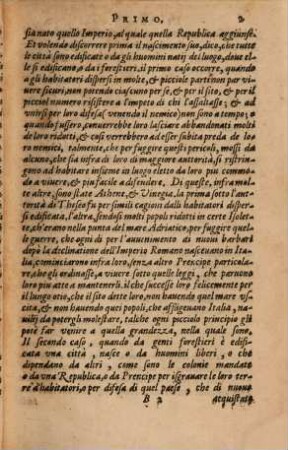 PRIMO, 2
sia nato quello Imperio, al quale quella Republica aggiunse.
Et volendo discorrere prima il nascimento suo, dico, che tutte
le città sono edificate o da gli huomini natij del luogo, doue el-
le si edificano, o da i forestieri. il primo caso occorre, quando
a gli habitatori dispersi in molte, & picciole parti non par viue-
re sicuri, non potendo ciascuno per se, & per il sito, & per il
picciol numero resistere a l'impeto di chi l'assaltasse; & ad
vnirsi per loro difesa (venendo il nemico) non sono a tempo; o
quando fussero, conuerrebbe loro lasciare abbandonati molti
de loro ridotti, & così verrebbero ad esser subita preda de lo-
ro nemici, talmente, che per fuggire questi pericoli, mossi da
alcuno, che sia infra di loro di maggiore auttorità, si ristrin-
gono ad habitare insieme in luogo eletto da loro più commo-
do a viuere, & più facile a difendere. Di queste, infra mol-
te altre, sono state Athene, & Vinegia, la prima sotto l'aut-
torità di Theseo fu per simili cagioni dalli habitatori disper-
si edificata, l'altra, sendosi molti popoli ridotti in certe Isolet-
te, ch'erano nella punta del mare Adriatico, per fuggire quel-
le guerre, che ogni dì per l'auuenimento di nuoui barbari
dopò la declinatione dell'Imperio Romano nasceuano in Ita-
lia, cominciarono infra loro, senza altro Prencipe particola-
re, che gli ordinasse, a viuere sotto quelle leggi, che paruono
loro più atte a mantenerli. il che successe loro felicemente per
il lungo otio, che il sito dette loro, non hauendo quel mare vsci-
ta, & non hauendo quei popoli, che affligeuano Italia, na-
uilij da potergli molestare, talche ogni picciolo principio gli
potè far venire a quella grandezza, nella quale sono.
Il secondo caso, quando da genti forestieri è edifi-
cata vna città, nasce o da huomini liberi, o che
dipendano da altri, come sono le colonie mandate
o da vna Republica, o da Prencipe per isgrauare le loro ter-
re d'habitatori, o per difesa di quel paese, che di nuouo
B 2 acquistato